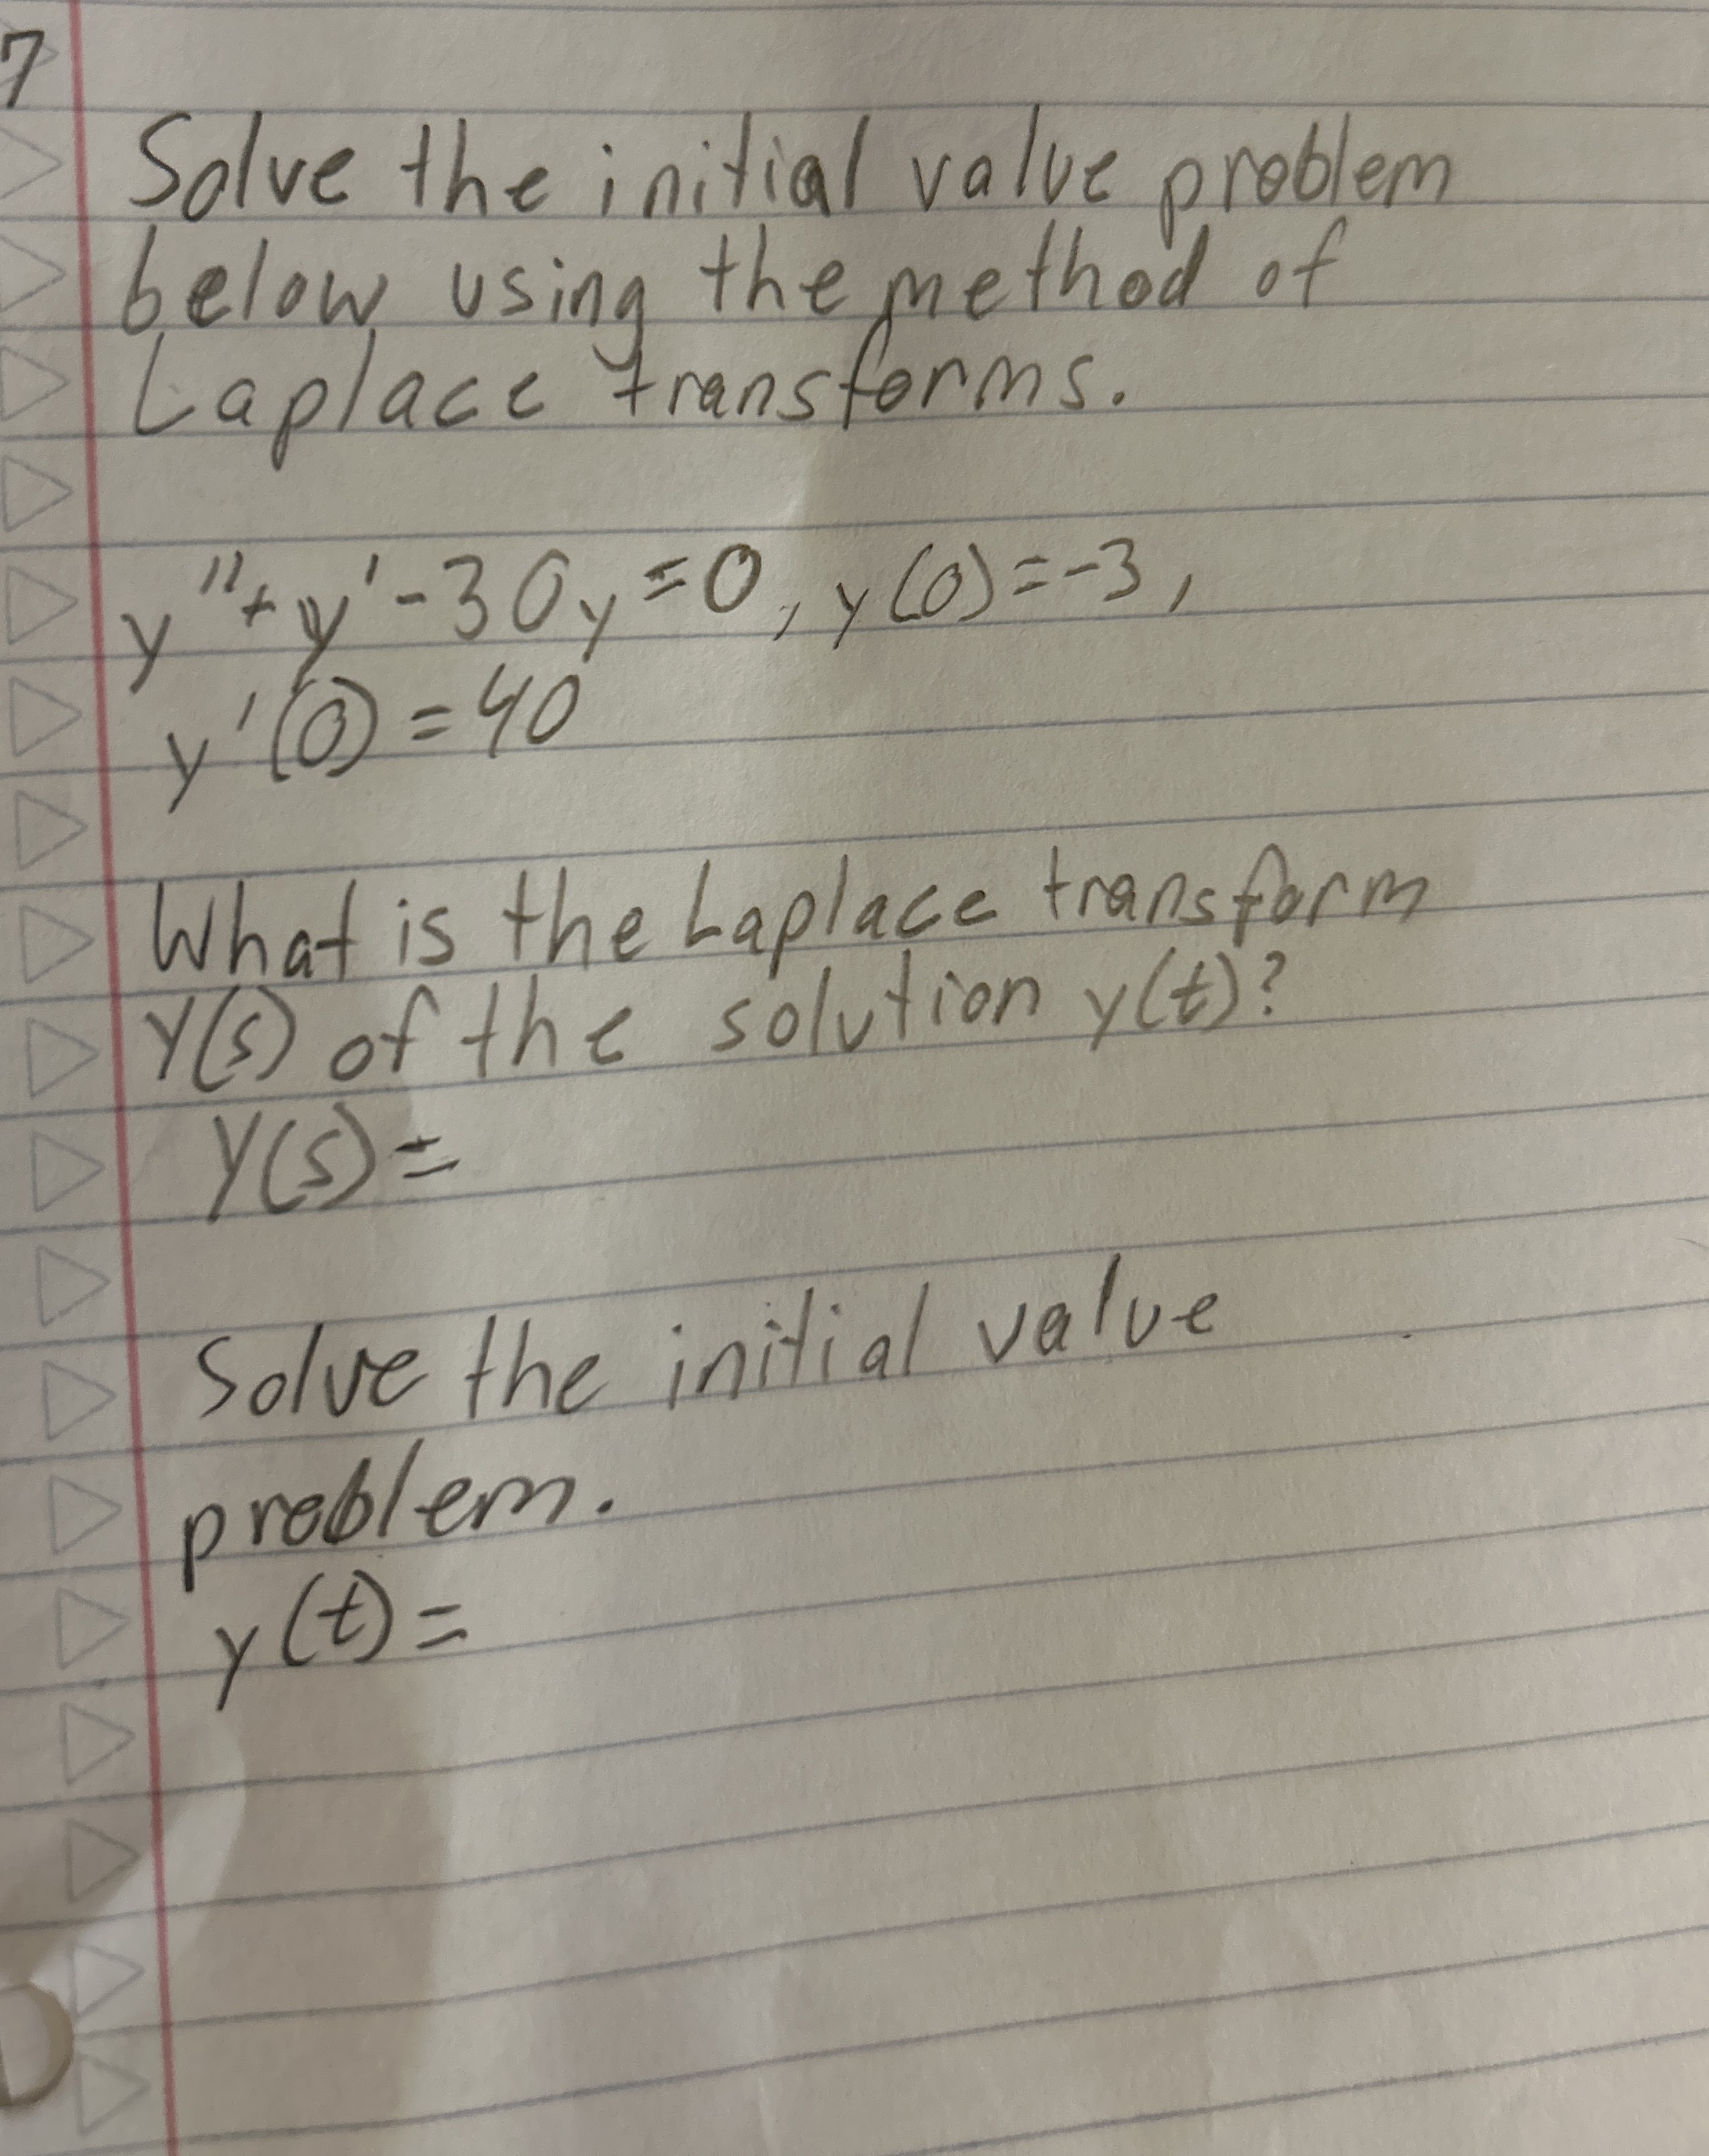 7
Solve the initial value problem
below using the method of
Laplace transforms.
y''+y'-30y=0, y(0)=-3,
y'(0)=40
What is the Laplace transform
Y(s) of the solution y(t)?
Y(s)=
Solve the initial value
problem.
y(t)=